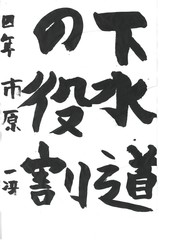 下水道
の役割
四年 市原 一